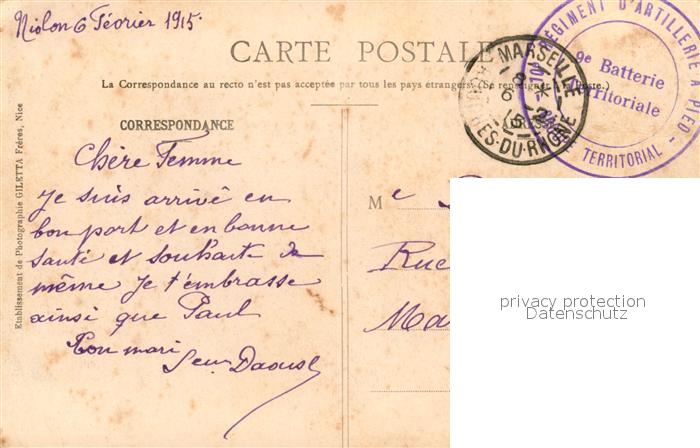 Niolon 6 Février 1915.
CARTE POSTALE
La Correspondance au recto n'est pas acceptée par tous les pays étrangers (Se renseigner à la Poste.)
CORRESPONDANCE
Chère Femme
Je suis arrivé en
bon port et en bonne
santé et souhaite de
même Je t'embrasse
ainsi que Paul
Ton mari
Daoust
Etablissement de Photographie GILETTA Frères, Nice
MARSEILLE
8 *
6 - 2
15
BCHES-DU-RHONE
RÉGIMENT D'ARTILLERIE A PIED
9e Batterie
Territoriale
TERRITORIAL
Me
Rue
Ma
privacy protection
Datenschutz